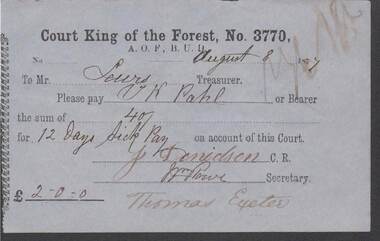 Court King of the Forest, No. 3770,
A. O. F., B. U. D.
No August 8 187
To Mr. Lewis Treasurer.
Please pay V K Pahl or Bearer
the sum of 40/
for 12 Days Sick Pay on account of this Court.
J Denidson C. R.
Wm Rowe Secretary.
£ 2-0-0
Thomas Exeter